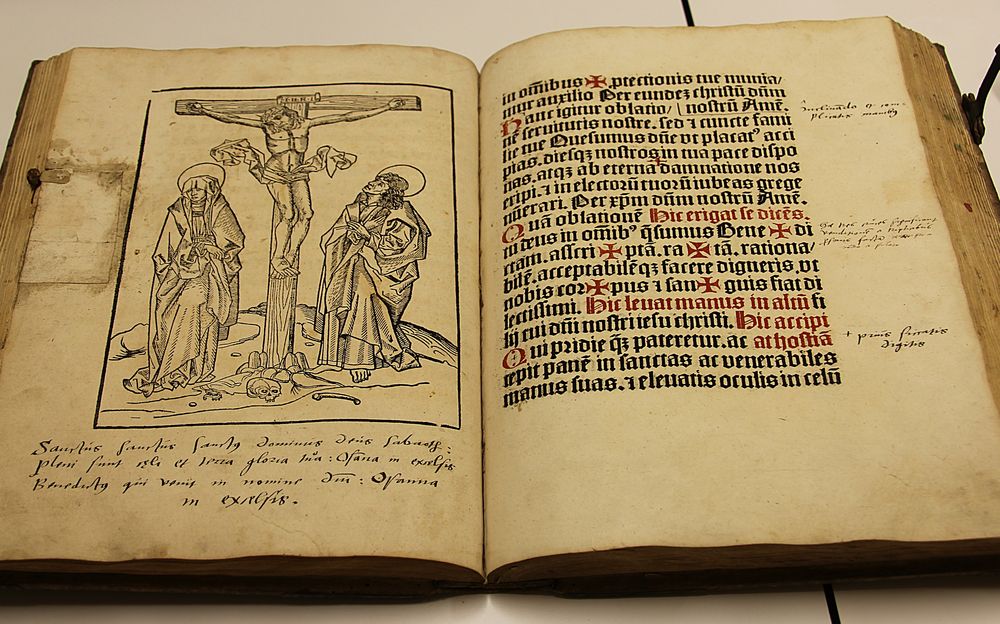 INRI
Sanctus sanctus sanctus dominus deus sabaoth:
Pleni sunt cęli et terra gloria tua: Osana in excelsis
Benedictus qui venit in nomine dni: Osanna
in excelsis.
in om̄ibus ✠ ptectionis tue munia/
mur auxilio Per eundez christū dn̄m
Hanc igitur oblatio/ nostrū Amē.
ne seruitutis nostre. sed ⁊ cuncte fami
lie tue Quesumus dn̄e vt placatꝰ acci
pias. diesqꝫ nostros in tua pace dispo
nas. atqꝫ ab eterna damnatione nos
eripi. ⁊ in electorū tuorū iubeas grege
numerari. Per xp̄m dn̄m nostrū Amē.
Quā oblationē Hic erigat se dicēs.
tu deus in om̄ibꝰ q̄sumus Bene ✠ di
ctam. ascri ✠ ptā. ra ✠ tā. rationa/
bilē. acceptabilē qꝫ facere digneris. vt
nobis cor ✠ pus ⁊ san ✠ guis fiat di
lectissimi. Hic leuat manus in altū fi
lij tui dn̄i nostri iesu christi. Hic accipi
Qui pridie qꝫ pateretur. ac at hostiā
cepit panē in sanctas ac venerabiles
manus suas. ⁊ eleuatis oculis in celū
manibus
+ prius
digitis